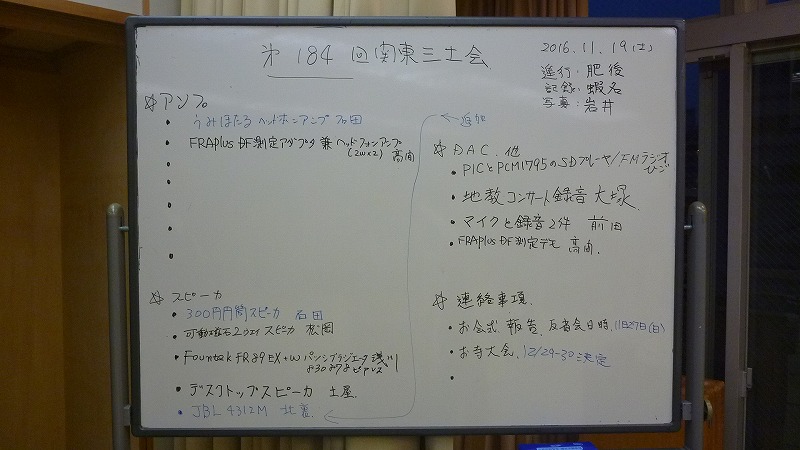 第184回関東三土会
2016.11.19(土)
進行:肥後
記録:蝦名
写真:岩井
☆アンプ
・うみほたるヘッドホンアンプ 石田
・FRAplus DF測定アダプタ兼ヘッドフォンアンプ
(2W×2) 高向
・
・
・
・
・
☆スピーカ
・300円円筒スピーカ 石田
・可動磁石2ウェイスピーカ 松岡
・Fountek FR89EX+Wパッシブラジエータ 浅川
・デスクトップスピーカ 土屋
・JBL 4312M 北
←追加
☆DAC、他
・PICとPCM1795のSDプレーヤ/FMラジオ
ひご
・地教コンサート録音 大塚
・マイクと録音2件 前田
・FRAplus DF測定デモ 高向
☆連絡事項
・お会式 報告、反省会日時、11月27日(日)
・お寺大会、12/29-30決定
・